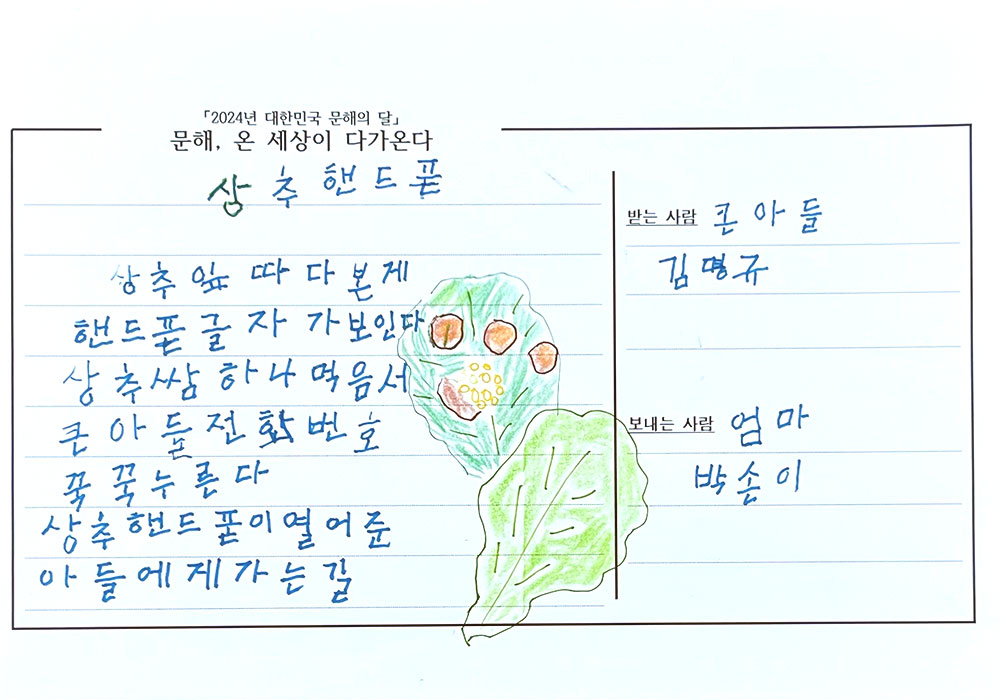 「2024년 대한민국 문해의 달」
문해, 온 세상이 다가온다
상추핸드폰
상추잎 따다본게
핸드폰글자가보인다
상추쌈하나먹음서
큰아들전화번호
꾹꾹누른다
상추핸드폰이열어준
아들에게가는길
받는 사람 큰아들
김명규
보내는 사람 엄마
박손이